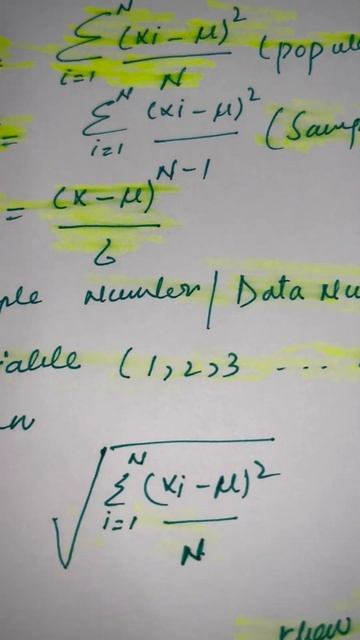 ∑ᵢ₌₁ᴺ (xi − μ)² / N (popul
= ∑ᵢ₌₁ᴺ (xi − μ)² / N−1 (Samp
= (x − μ) / 6
ple Number / Data Nu
iable (1,2,3 ....
n
√ ∑ᵢ₌₁ᴺ (xi − μ)² / N